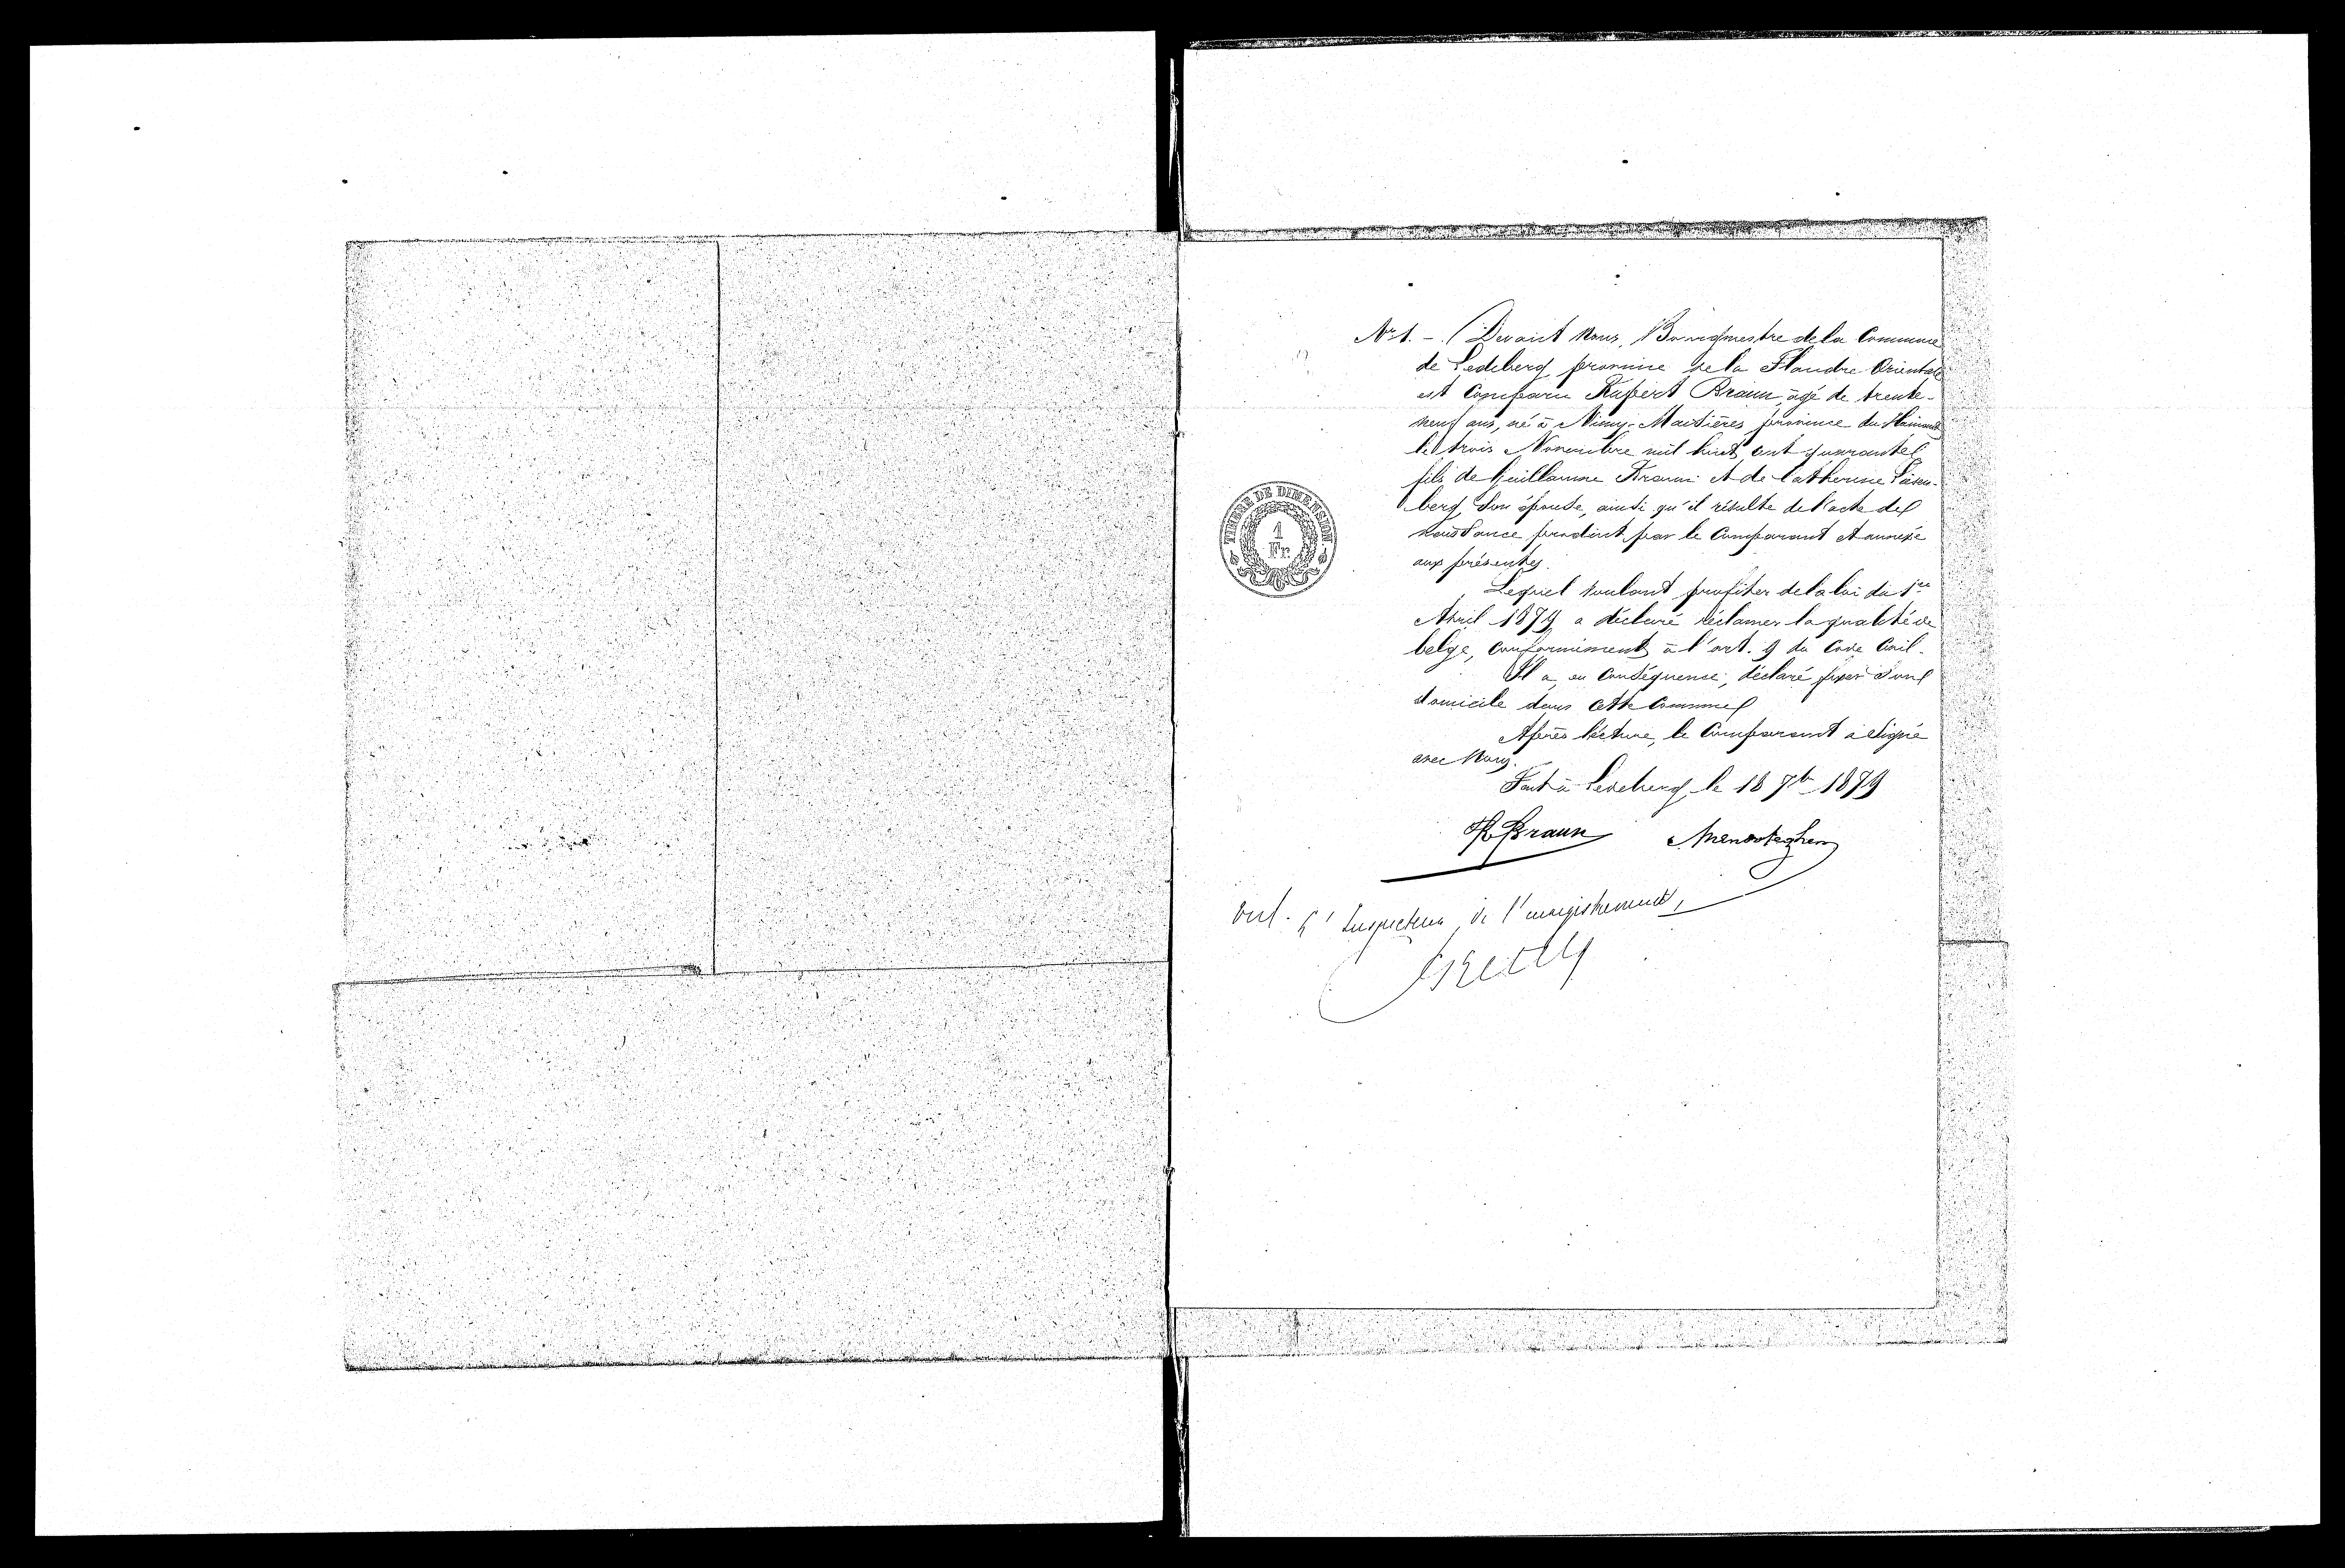 Nr 1. - Devant Nous, Bourgmestre de la Commune
de Ledeberg province de la Flandre Orientale
est Comparu Rupert Braun, agé de trente-
neuf ans, né à Nimy-Maisières province du Hainaut
le trois Novembre mil huit cent quarante
fils de Guillaume Braun et de Catherine
berg, son épouse, ainsi qu'il résulte de l'acte de
naissance produit par le Comparant et annexé
aux présentes.
TIMBRE DE DIMENSION.
1
Fr.
Lequel voulant profiter de la loi du 1er
Avril 1879 a déclaré réclamer la qualité de
belge, conformément à l'art. 9 du Code Civil.
Il a, en Conséquence, déclaré fixer son
domicile dans cette Commune
Après lecture, le Comparant a signé
avec Nous.
Fait à Ledeberg, le 18 7br 1879
R Braun
Vu. L'Inspecteur de l'enregistrement,